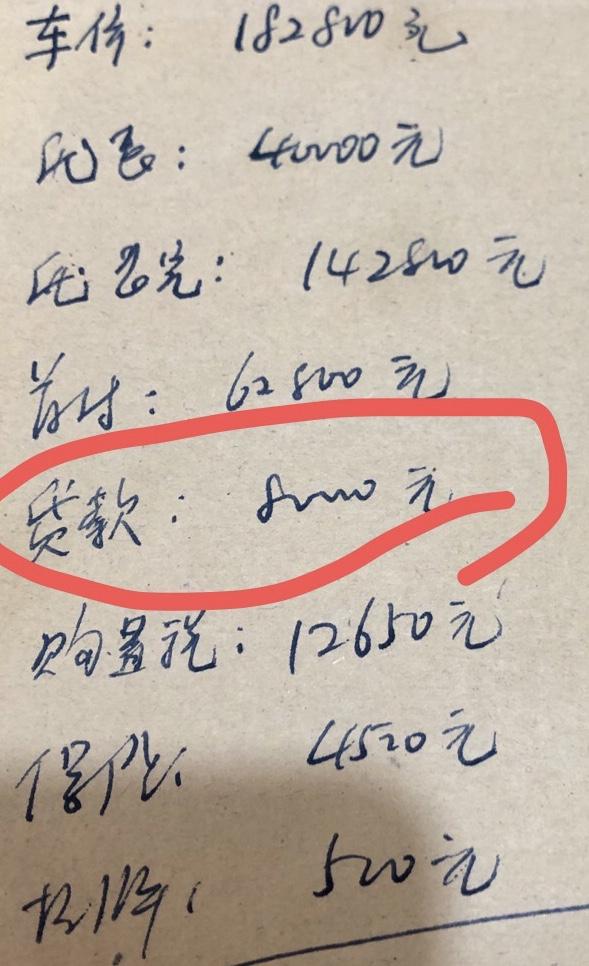 车价：182800元
优惠：40000元
优惠完：142800元
首付：62800元
贷款：80000元
购置税：12650元
保险：4500元
500元